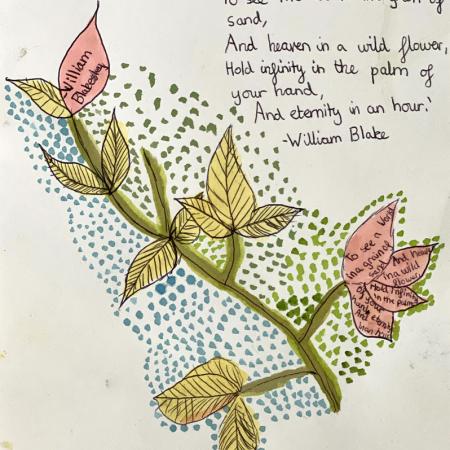 sand,
And heaven in a wild flower,
Hold infinity in the palm of
your hand,
And eternity in an hour.'
-William Blake
William
To see a World
in a grain of
sand
in a wild
flower
Hold infinity
in the palm
of your